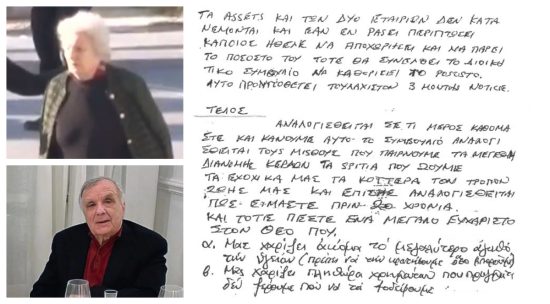 ΤΑ ASSETS ΚΑΙ ΤΩΝ ΔΥΟ ΕΤΑΙΡΙΩΝ ΔΕΝ ΚΑΤΑ
ΝΕΜΟΝΤΑΙ ΚΑΙ ΕΑΝ ΕΝ ΠΑΣΕΙ ΠΕΡΙΠΤΩΣΕΙ
ΚΑΠΟΙΟΣ ΗΘΕΛΕ ΝΑ ΑΠΟΧΩΡΙΣΕΙ ΚΑΙ ΝΑ ΠΑΡΕΙ
ΤΟ ΠΟΣΟΣΤΟ ΤΟΥ ΤΟΤΕ ΘΑ ΣΥΝΕΛΘΕΙ ΤΟ ΔΙΟΙΚΗ
ΤΙΚΟ ΣΥΜΒΟΥΛΙΟ ΝΑ ΚΑΘΟΡΙΣΕΙ ΤΟ ΠΟΣΟΣΤΟ.
ΑΥΤΟ ΠΡΟΫΠΟΘΕΤΕΙ ΤΟΥΛΑΧΙΣΤΟΝ 3 MONTHS NOTICE.
ΤΕΛΟΣ
ΑΝΑΛΟΓΙΣΘΕΙΤΑΙ ΣΕ ΤΙ ΜΕΡΟΣ ΚΑΘΟΜΑ
ΣΤΕ ΚΑΙ ΚΑΝΟΥΜΕ ΑΥΤΟ ΤΟ ΣΥΜΒΟΥΛΙΟ ΑΝΑΛΟΓΙ
ΣΘΕΙΤΑΙ ΤΟΥΣ ΜΙΣΘΟΥΣ ΠΟΥ ΠΑΙΡΝΟΥΜΕ ΤΑ ΜΕΓΕΘΗ
ΔΙΑΝΟΜΗΣ ΚΕΡΔΩΝ ΤΑ ΣΠΙΤΙΑ ΠΟΥ ΖΟΥΜΕ
ΤΑ ΕΞΟΧΙΚΑ ΜΑΣ ΤΑ ΚΟΤΤΕΡΑ ΤΟΝ ΤΡΟΠΟΝ
ΖΩΗΣ ΜΑΣ ΚΑΙ ΕΠΙΣΗΣ ΑΝΑΛΟΓΙΣΘΕΙΤΑΙ
ΠΩΣ ΕΙΜΑΣΤΕ ΠΡΙΝ ΧΡΟΝΙΑ.
ΚΑΙ ΤΟΤΕ ΠΕΣΤΕ ΕΝΑ ΜΕΓΑΛΟ ΕΥΧΑΡΙΣΤΩ
ΣΤΟΝ ΘΕΟ ΠΟΥ.
α. Μας χαρίζει ακόμα το μεγαλύτερο αγαθό
την υγείαν
β. Μας χαρίζει πληθώρα χρημάτων που πραγματι
δεν ξέρουμε πού να τα